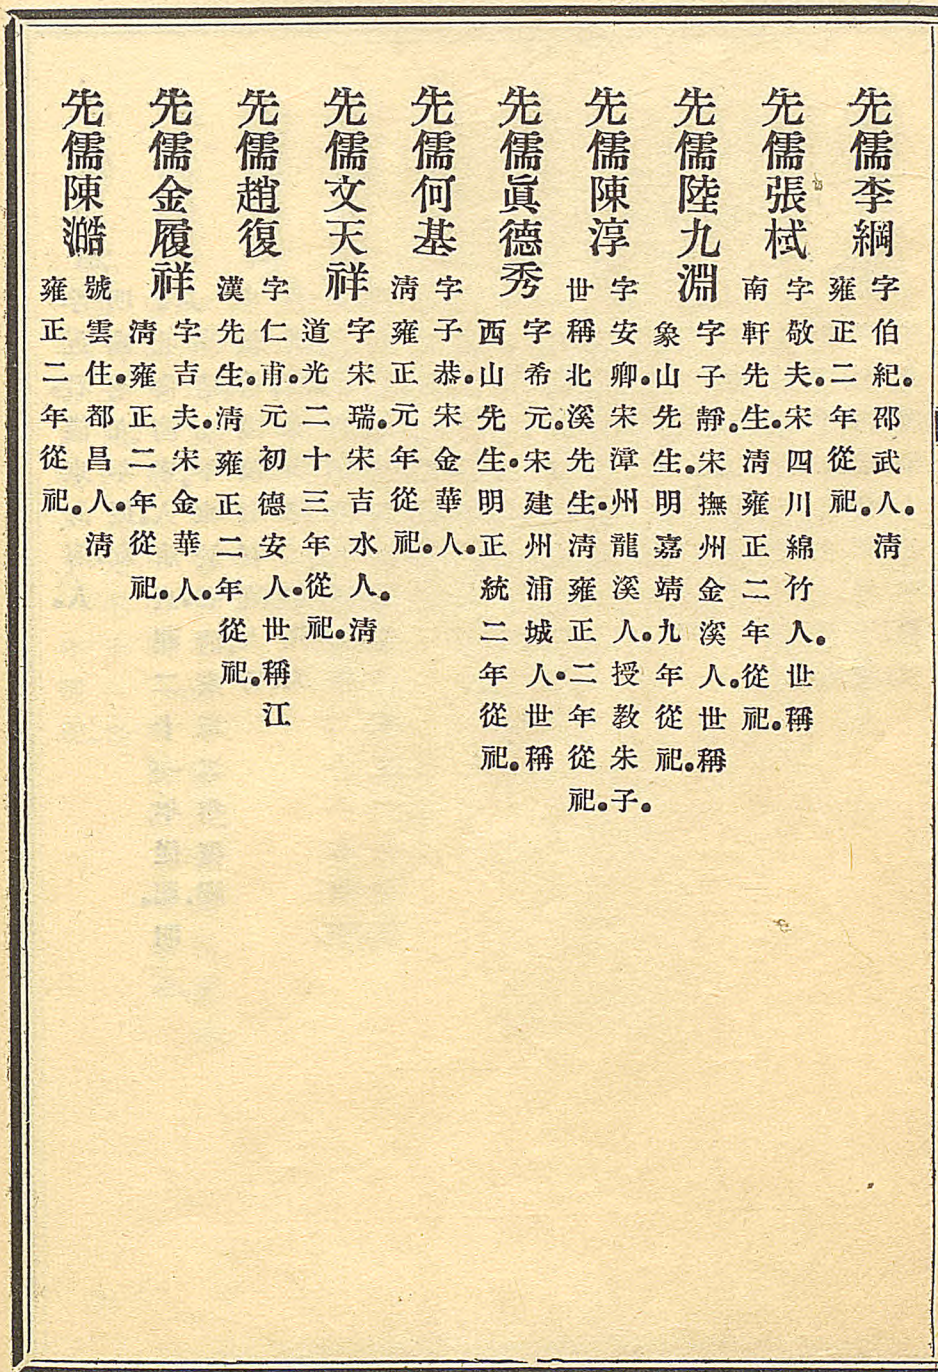 先儒李綱
字伯紀。邵武人。淸
雍正二年從祀。
先儒張栻
字敬夫。宋四川綿竹人。世稱
南軒先生。淸雍正二年從祀。
先儒陸九淵
字子靜。宋撫州金溪人。世稱
象山先生。明嘉靖九年從祀。
先儒陳淳
字安卿。宋漳州龍溪人。授敎朱子。
世稱北溪先生。淸雍正二年從祀。
先儒眞德秀
字希元。宋建州浦城人。世稱
西山先生。明正統二年從祀。
先儒何基
字子恭。宋金華人。
淸雍正元年從祀。
先儒文天祥
字宋瑞。宋吉水人。淸
道光二十三年從祀。
先儒趙復
字仁甫。元初德安人。世稱江
漢先生。淸雍正二年從祀。
先儒金履祥
字吉夫。宋金華人。
淸雍正二年從祀。
先儒陳澔
號雲住。都昌人。淸
雍正二年從祀。